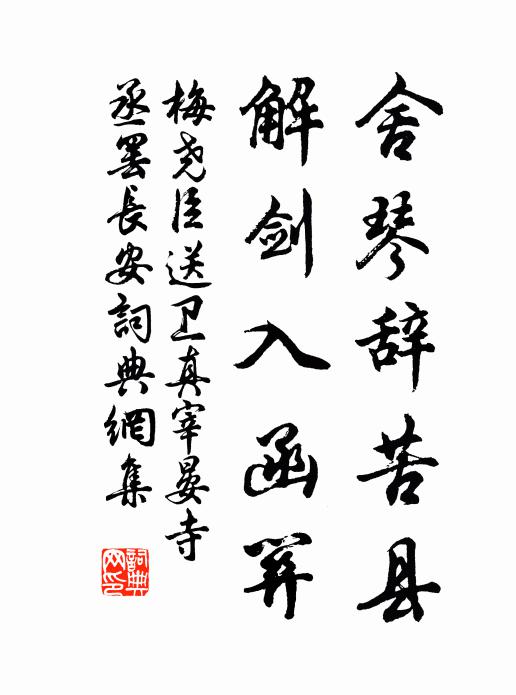 舍琴辞苦县
解剑入函关
梅尧臣送卫真宰晏寺
丞罢长安詞典網集
詞典網印